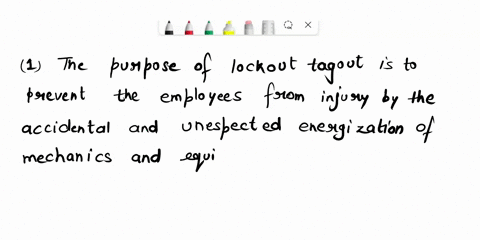 (1) The purpose of lockout tagout is to
prevent the employees from injury by the
accidental and unespected energization of
mechanics and equi